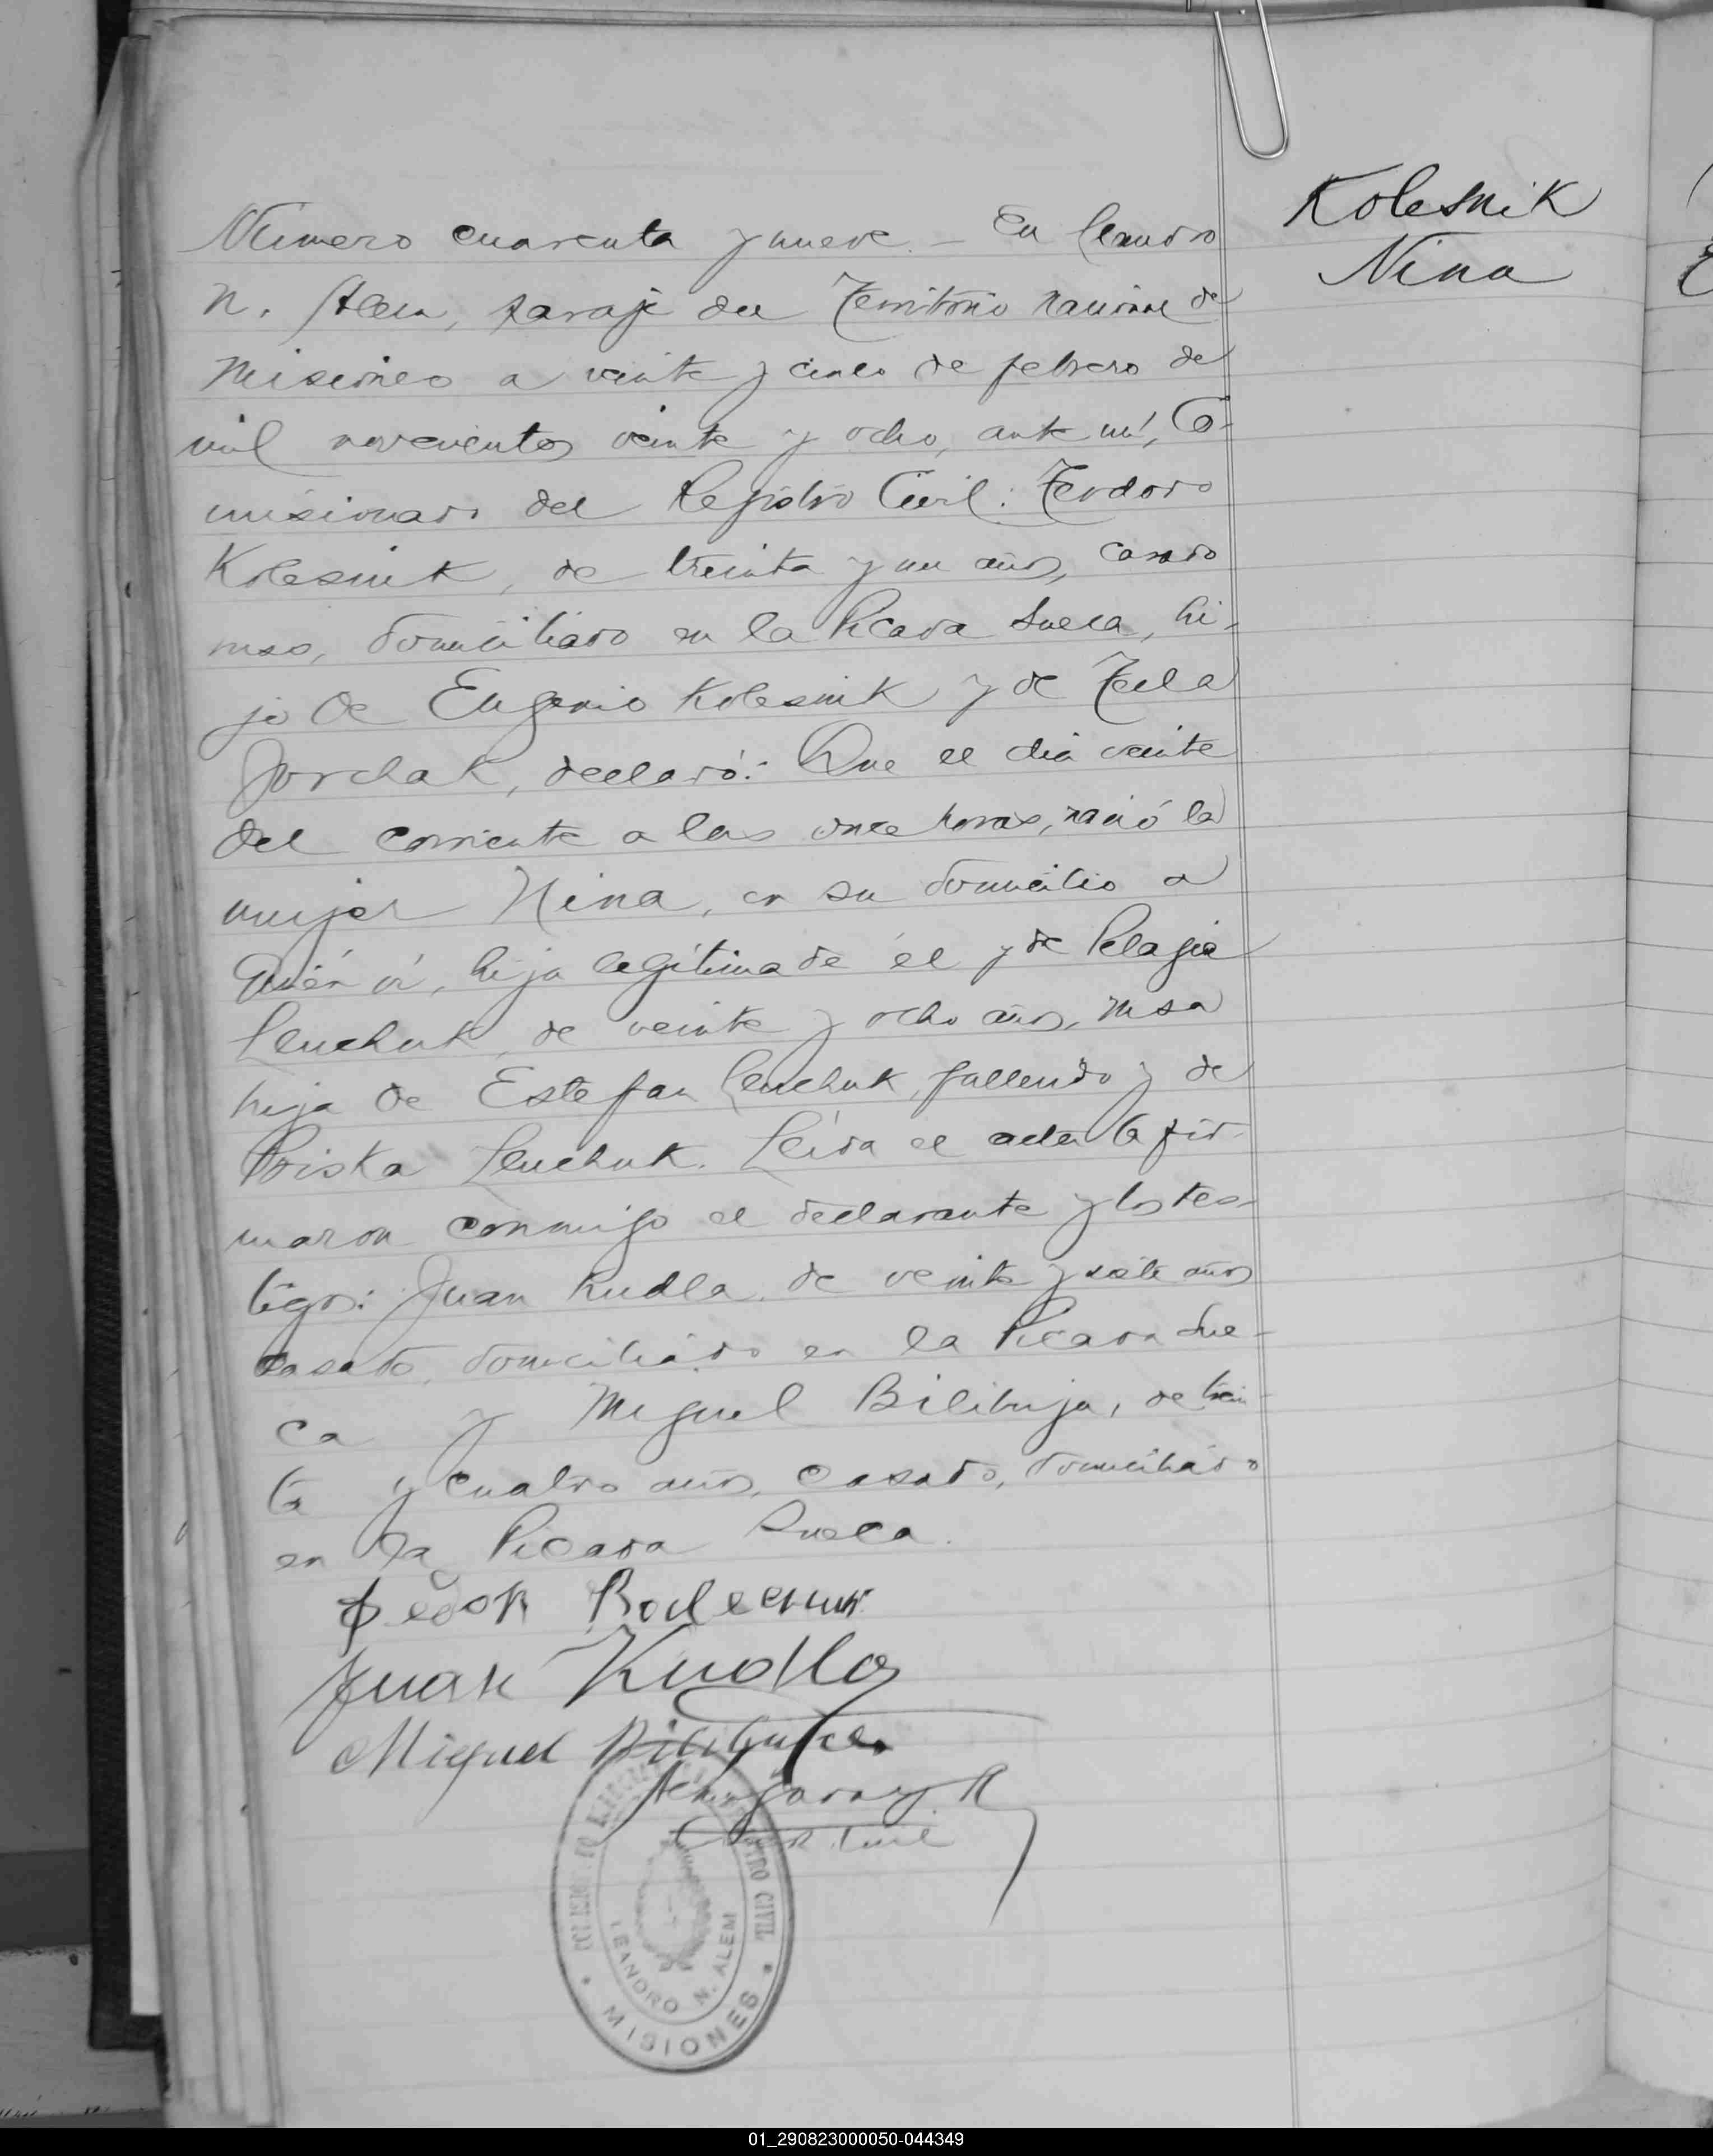 Kolesnik
Nina
Número cuarenta y nueve. — En Leandro
N. Alem, paraje del Territorio nacional de
Misiones a veinte y cinco de febrero de
mil novecientos veinte y ocho, ante mí, Co-
misionado del Registro Civil: Teodoro
Kolesnik, de treinta y un años, casado
ruso, domiciliado en la Picada Sueca, hi-
jo de Eugenio Kolesnik y de Tecla
declaró: Que el día veinte
del corriente a las once horas, nació la
mujer Nina, en su domicilio a
quién ví, hija legítima de él y de Pelagia
Lenchuk, de veinte y ocho años, rusa
hija de Estefan Lenchuk, fallecido y de
Priska Lenchuk. Leída el acta la fir-
maron conmigo el declarante y los tes-
tigos: Juan Kudla, de veinte y siete años
casado, domiciliado en la Picada Sue-
ca y Miguel Bilibuja, de trein-
ta y cuatro años, casado, domiciliado
en la Picada Sueca.
Juan Kudla
Miguel
REGISTRO CIVIL
LEANDRO N. ALEM
* MISIONES *
01_290823000050-044349